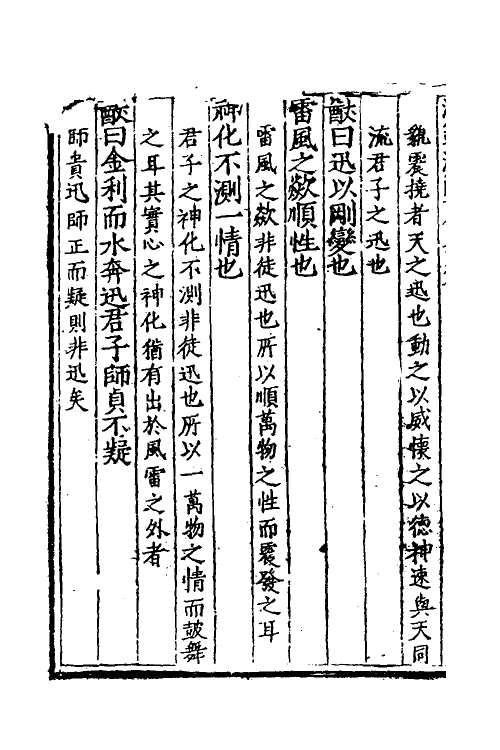 孰震撓者天之迅也動之以威懷之以德神速與天同
流君子之迅也
猷曰迅以剛變也
雷風之歘順性也
雷風之歘非徒迅也所以順萬物之性而震發之耳
神化不測一情也
君子之神化不測非徒迅也所以一萬物之情而鼓舞
之耳其實心之神化猶有出於風雷之外者
猷曰金利而水奔迅君子師貞不疑
師貴迅師正而疑則非迅矣